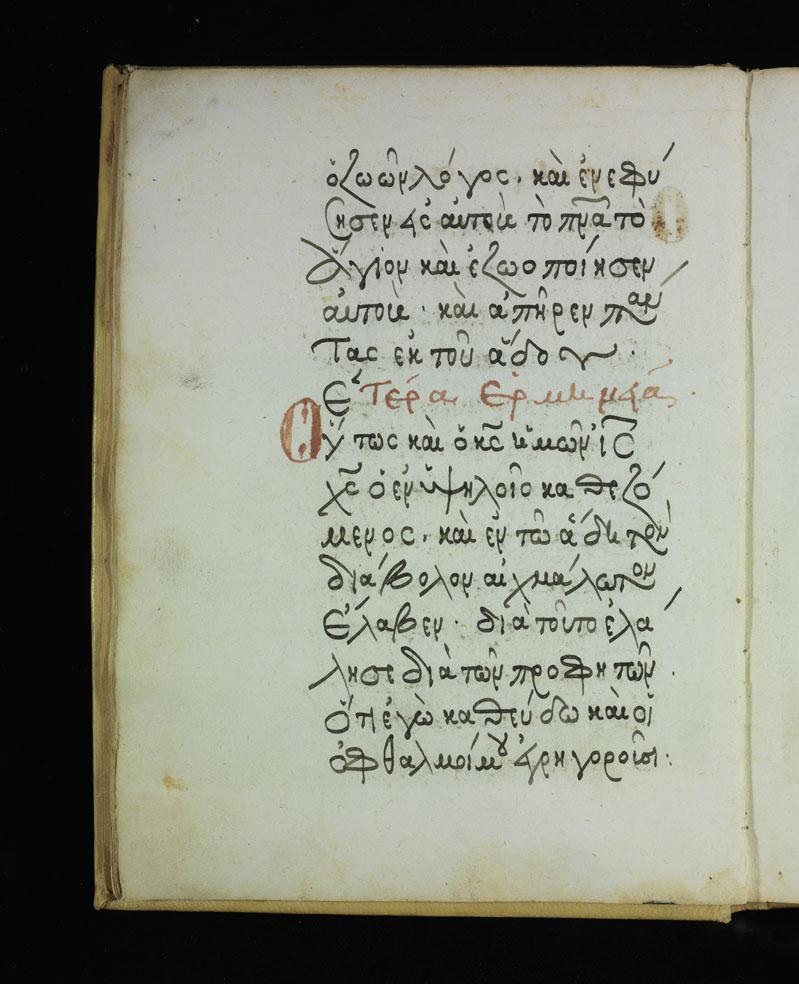 ὁ ζωῶν λόγος. καὶ ἐνεφύ
σησεν δὲ αὐτοὺς τὸ πνᾶ τὸ
ἅγιον καὶ ἐζωοποίησεν
αὐτούς. καὶ ἀπῆρεν πάν
τας ἐκ τοῦ ᾅδου.
Ἑτέρα Ἑρμηνεία.
Οὕτως καὶ ὁ κς ἡμῶν ις
χς ὁ ἐν ὑψηλοῖς καθεζό
μενος. καὶ ἐν τῶ ἅδη τὸν
διάβολον αἰχμάλωτον
ἔλαβεν. διὰ τοῦτο ἐλά
λησε διὰ τῶν προφητῶν.
ὅτι ἐγὼ καθεύδω καὶ οἱ
ὀφθαλμοί μου γρηγοροῖσι: